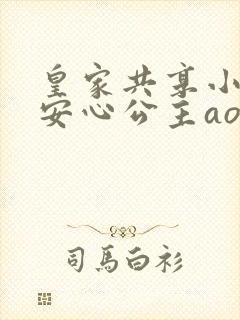 皇家共享小
安心公主ao
司马白衫